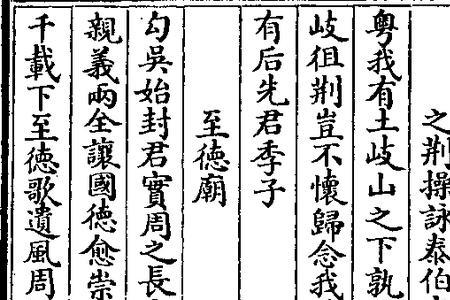 之荆操詠泰伯
粤我有土岐山之下孰
岐徂荆豈不懷歸念我
有后先君季子
至德廟
勾吳始封君實周之長
親義兩全讓國德愈崇
千載下至德歌遺風周